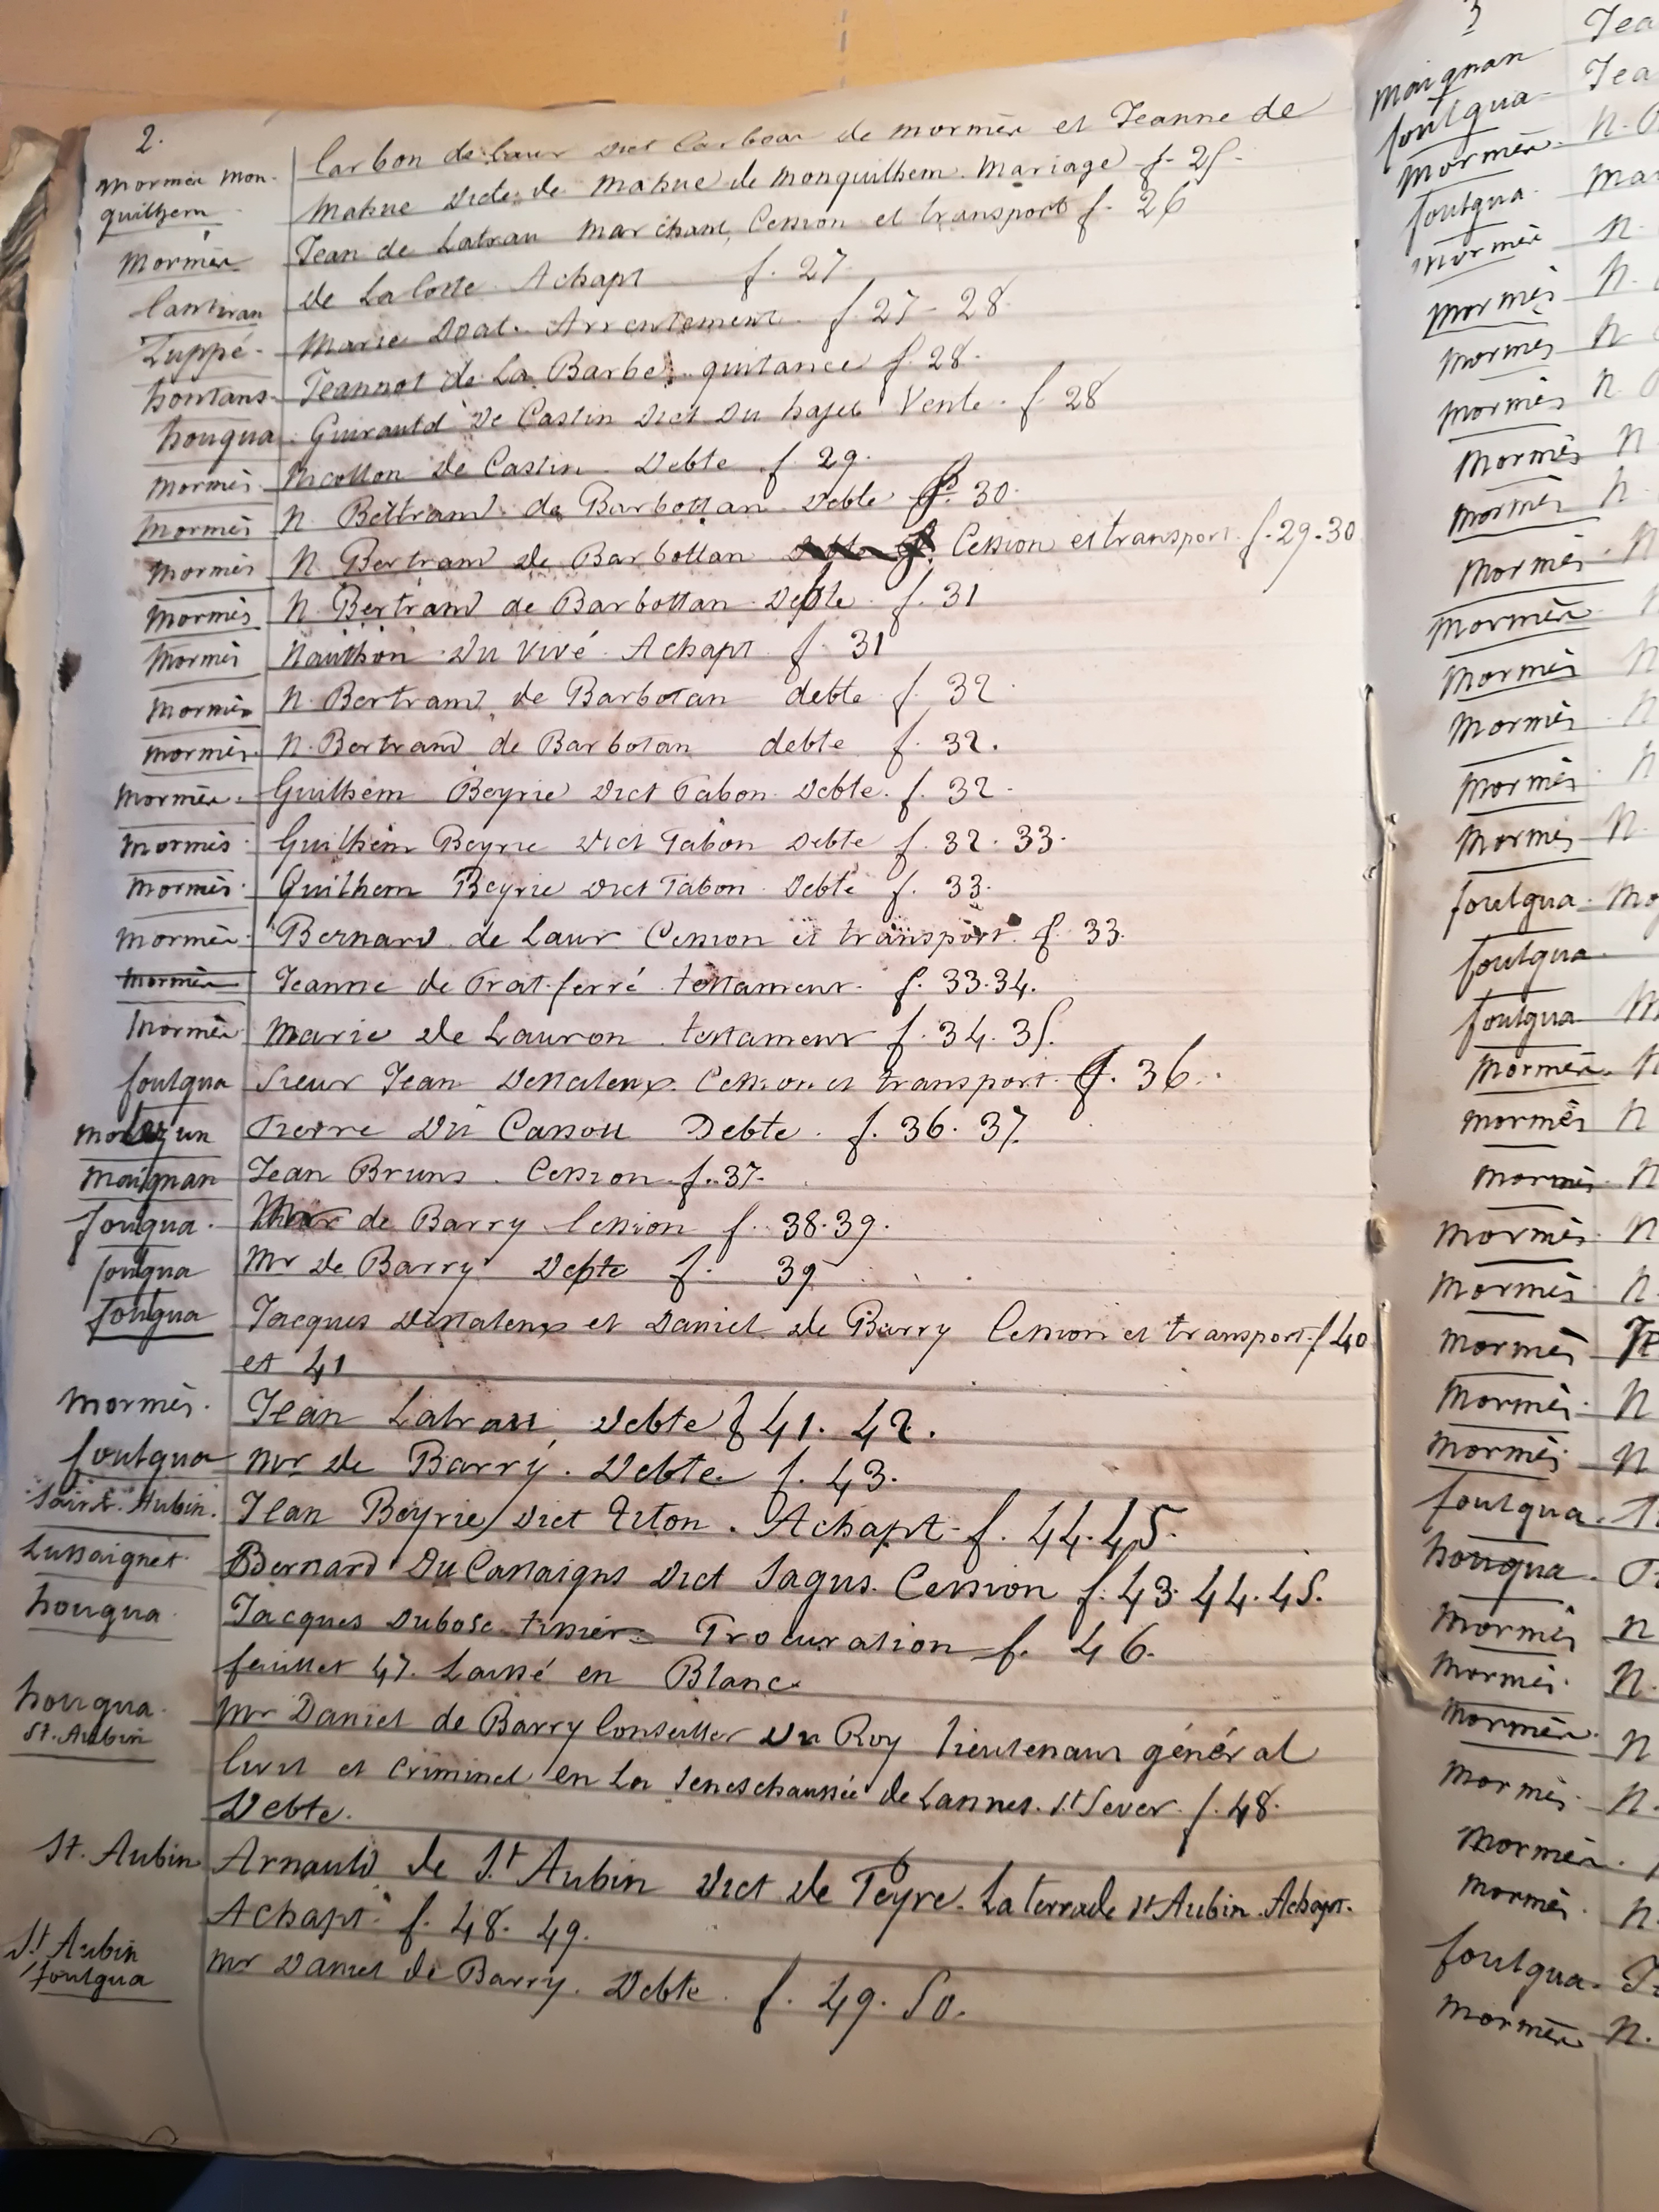 2.
Mormès Mon- Carbon de Laur dict Carbon de Mormès et Jeanne de
quilhem Mahue dicte de Mahue de Monquilhem. Mariage f. 25.
Mormès Jean de Latrau Marchant, Cession et transport f. 26
de La Coste Achapt f. 27
Luppé. Marie Doat. Arrentement. f. 27 - 28
hontans. Jeannot de La Barbe. quitance f. 28.
houqua. Guirautd de Castin dict Du hajet Vente. f. 28
Mormès. Nicotton de Castin. Debte f. 29.
Mormès N. Bertrand de Barbottan Debte f. 30.
Mormès N. Bertrand de Barbottan Cession et transport. f. 29-30
Mormès N. Bertrand de Barbottan Debte. f. 31
Mormès Nauthon Du Vivé. Achapt f. 31
Mormès N. Bertrand de Barbotan debte f. 32
Mormès. N. Bertrand de Barbotan debte f. 32.
Mormès. Guilhem Beyrie dict Tabon. Debte. f. 32.
Mormès. Guilhem Beyrie dict Tabon Debte f. 32. 33.
Mormès. Guilhem Beyrie dict Tabon. Debte f. 33.
Mormès. Bernard de Laur Cession et transport. f. 33.
Mormès Jeanne de Prat-ferré. testament. f. 33.34.
Mormès Marie de Lauron. testament f. 34. 35.
foulqua Sieur Jean Cession et transport. f. 36.
Pierre Du Cassou Debte. f. 36. 37.
Maignan Jean Bruns. Cession. f. 37.
fouqua. de Barry Cession f. 38.39.
fouqua Mr de Barry Debte f. 39
foulqua Jacques et Daniel de Barry Cession et transport. f 40
et 41
Mormès. Jean Latrau, Debte f 41. 42.
foulqua Mr de Barry. Debte. f. 43.
Saint. Aubin. Jean Beyrie dict Titon. Achapt. f. 44.45.
Lussaignet. Bernard Du Cassaigns dict Sagus. Cession f. 43. 44. 45.
houqua. Jacques Dubosc tissier Procuration f. 46.
feuillet 47. Laissé en Blanc.
houqua. Mr Daniel de Barry Conseiller Du Roy Lieutenant général
St. Aubin Civil et criminel en La Seneschaussée de Lannes. St Sever. f. 48.
Debte.
St. Aubin Arnauld de St Aubin dict de Peyre. Laterrade St Aubin. Achapt.
Achapt. f. 48. 49.
St Aubin Mr Daniel de Barry. Debte. f. 49. 50.
foulqua
3
Maignan Jea
foulqua. Jea
Mormès. N.
foulqua. Mar
Mormès N.
Mormès N.
Mormès N
Mormès N.
Mormès N
Mormès N.
Mormès. N
Mormès. N
Mormès N
Mormès. N
Mormès N
Mormès N.
foulqua. Mo
foulqua.
foulqua M
Mormès. N
Mormès N
Mormès N
Mormès. N
Mormès N.
Mormès Je
Mormès. N
Mormès. N
foulqua.
houqua.
Mormès N
Mormès. N.
Mormès. N
Mormès. N.
Mormès.
Mormès. N.
foulqua. J
Mormès N.